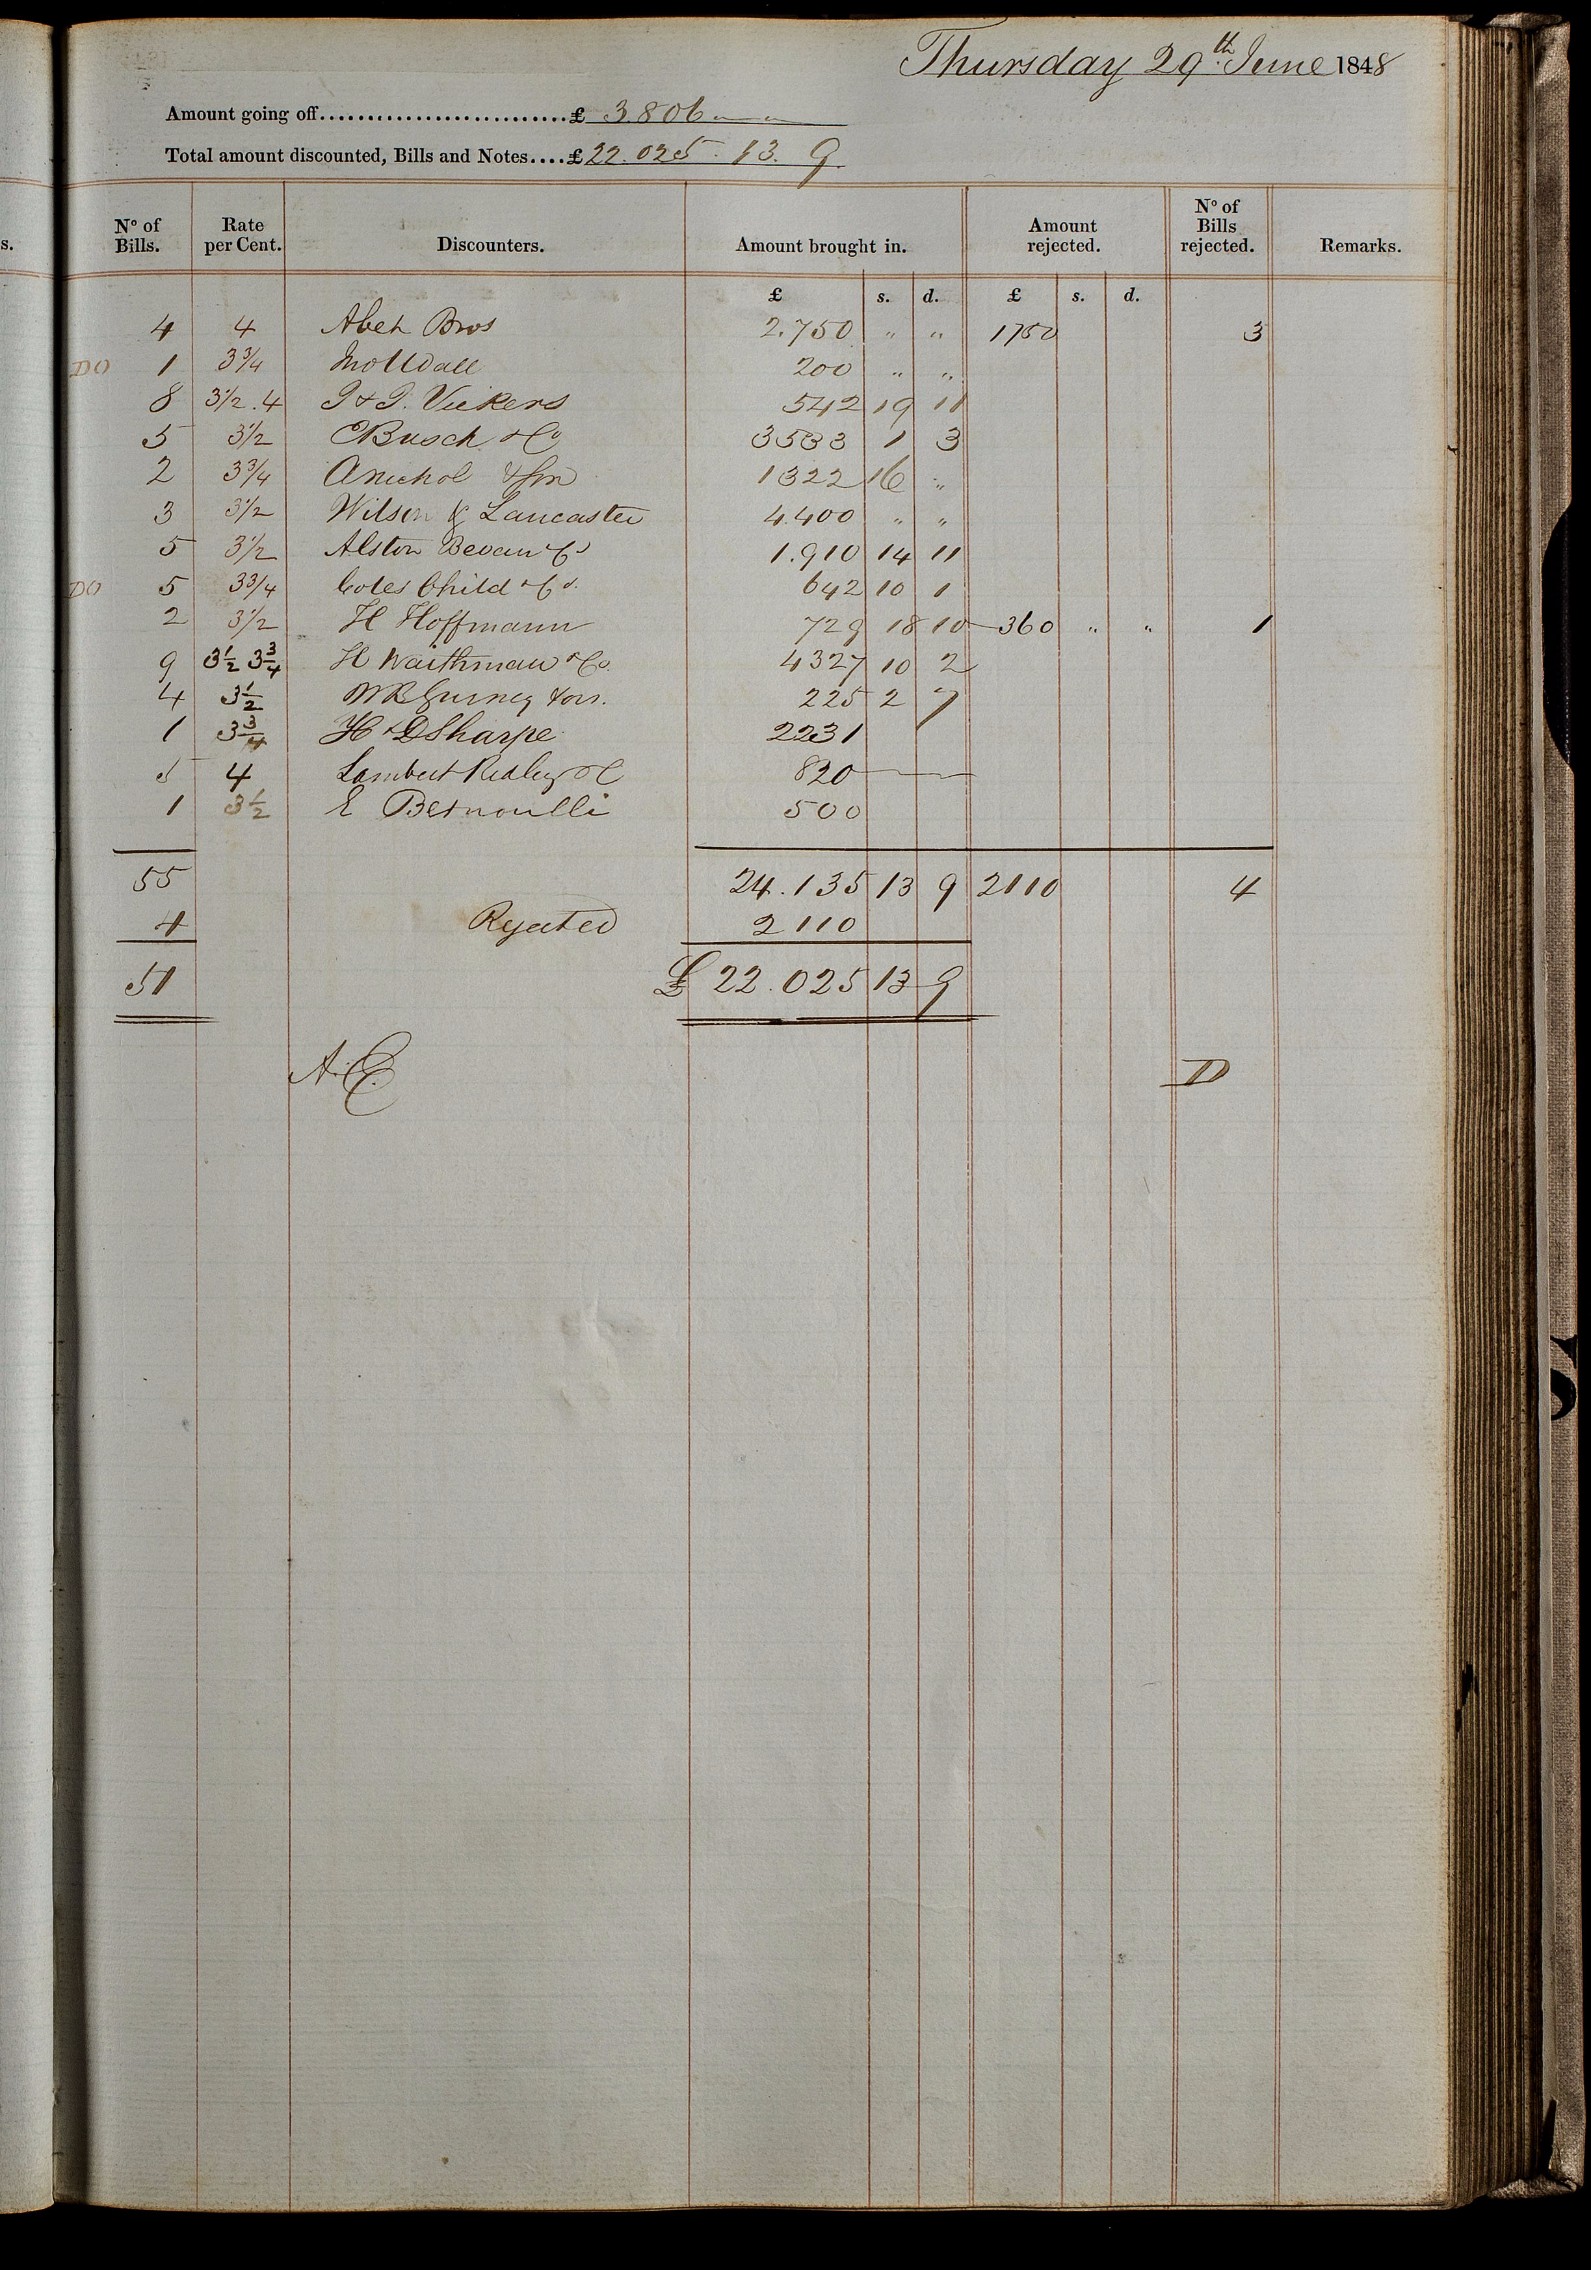 Thursday 29th June 1848
Amount going off...........................£ 3.806 " "
Total amount discounted, Bills and Notes....£ 22.025. 13. 9
s.
No of Bills. Rate per Cent. Discounters. Amount brought in. Amount rejected. No of Bills rejected. Remarks.
£ s. d. £ s. d.
4 4 Abeh Bros 2.750 " " 1750 3
DO 1 3 3/4 200 " "
8 3 1/2 . 4 J & J. Vickers 542 19 11
5 3 1/2 C Busch & Co 3533 1 3
2 3 3/4 A Nichol & Son 1322 16 "
3 3 1/2 Wilson & Lancaster 4.400 " "
5 3 1/2 Alston Bevan & Co 1.910 14 11
DO 5 3 3/4 Coles Child & Co. 642 10 1
2 3 1/2 H Hoffmann 729 18 10 360 " " 1
9 3 1/2 3 3/4 H Waithman & Co. 4327 10 2
4 3 1/2 W B Gurney & ors. 225 2 7
1 3 3/4 H & D Sharpe 2231
5 4 Lambert Ridley & C 820
1 3 1/2 E Bernoulli 500
55 24.135 13 9 2110 4
4 Rejected 2110
51 £ 22.025 13 9
A.C. D